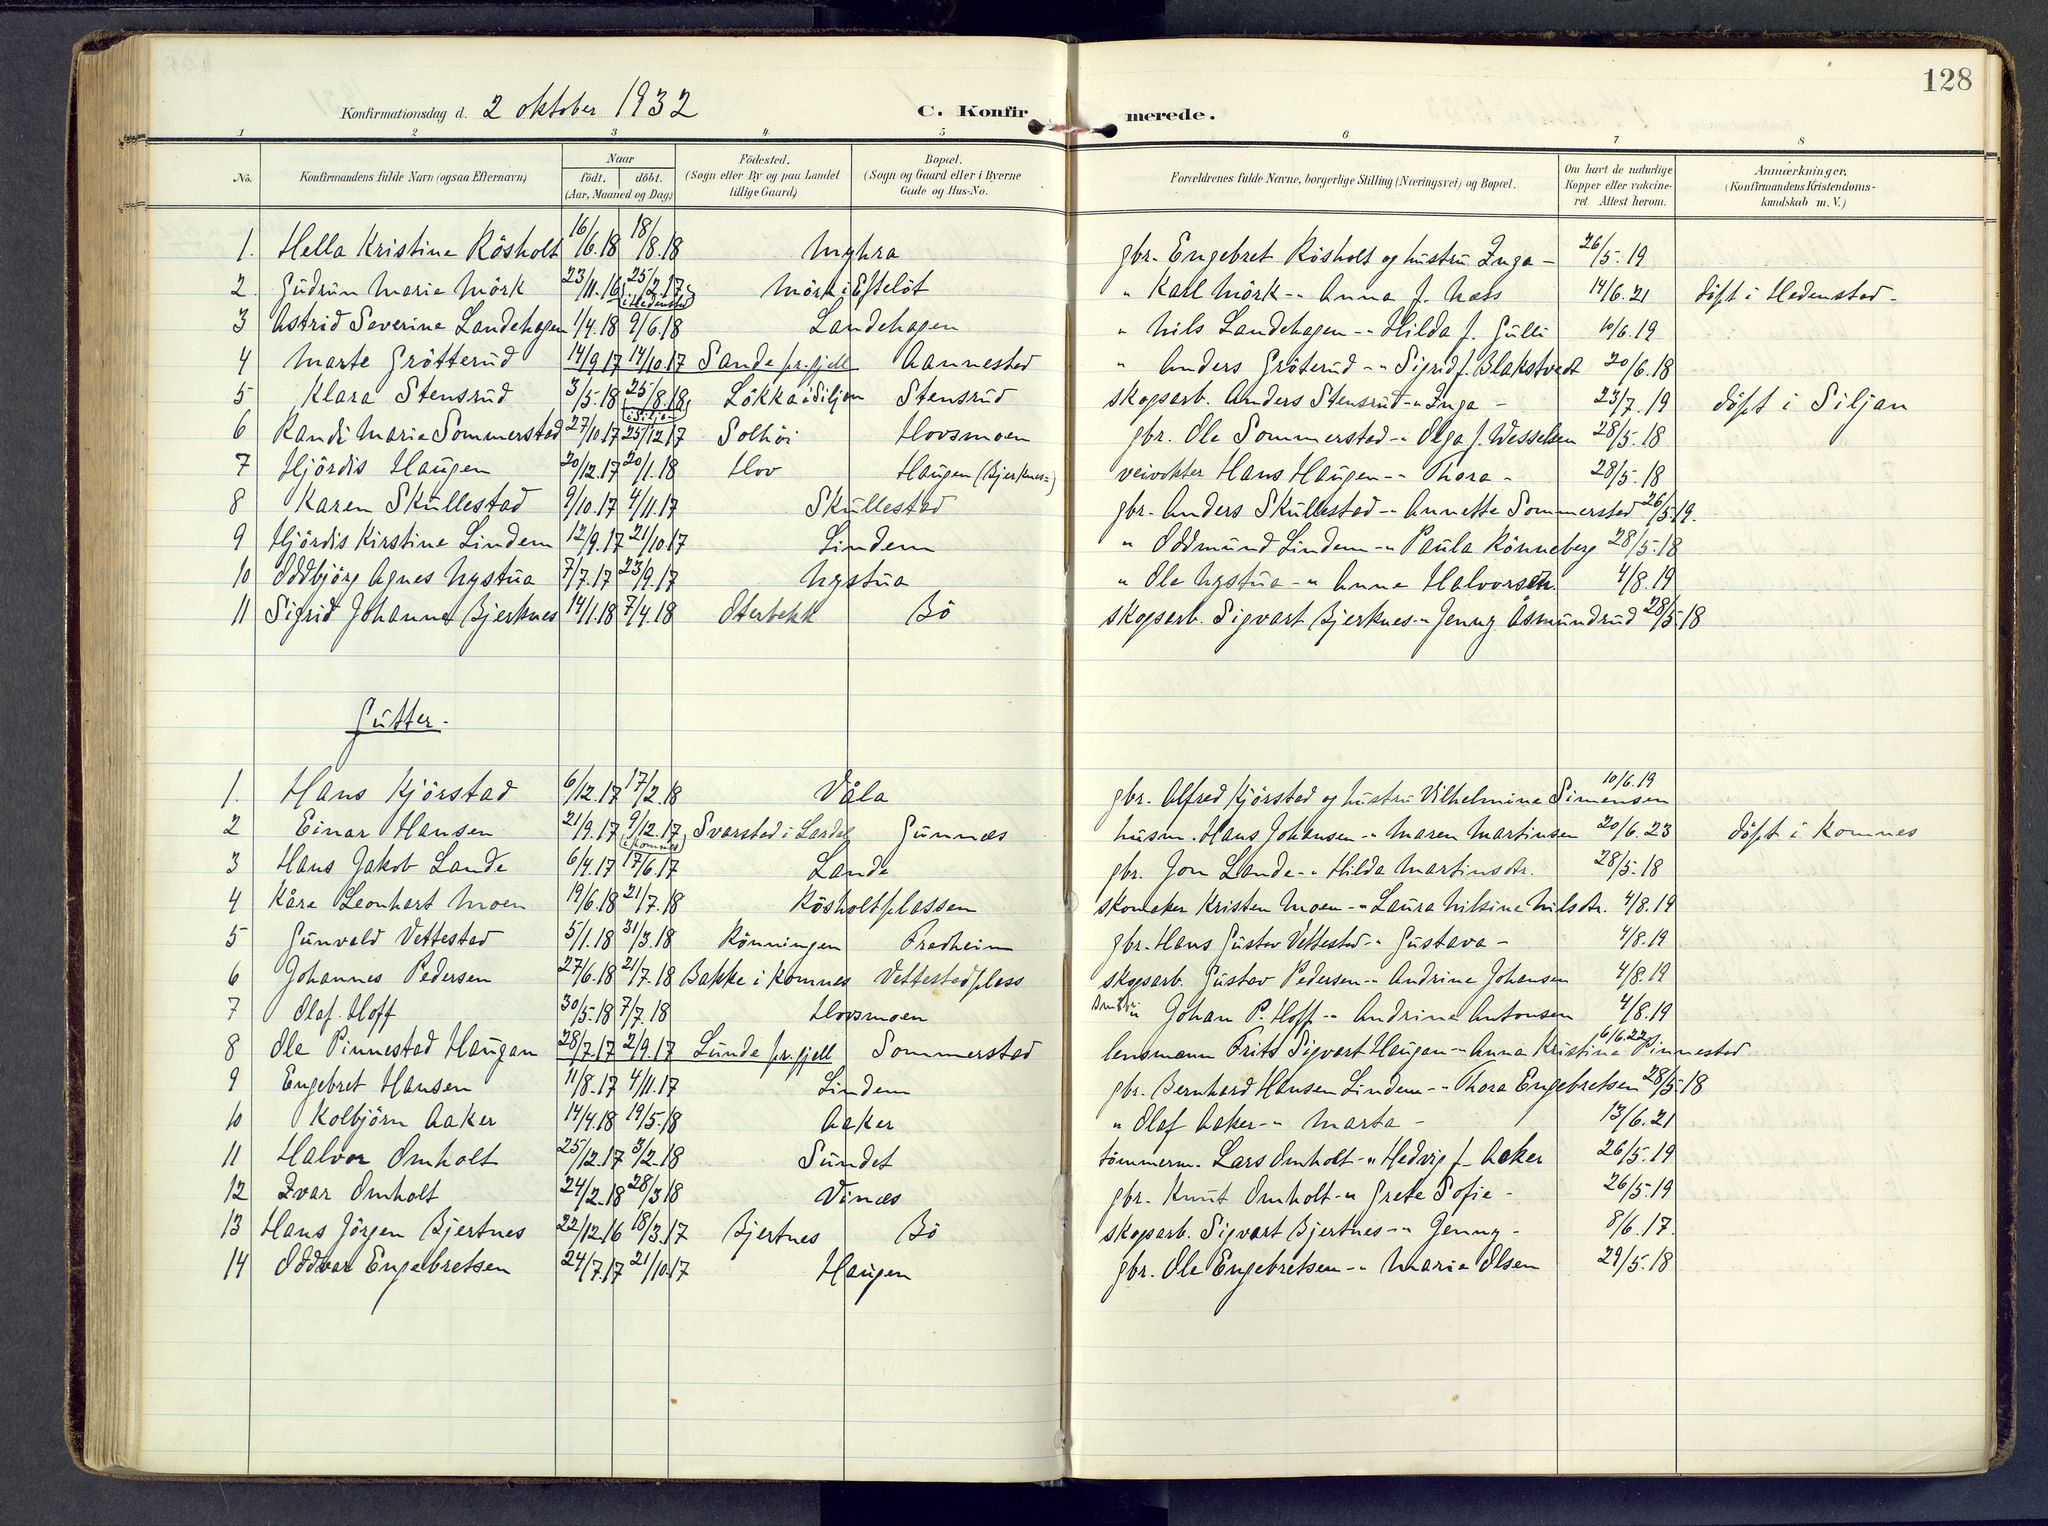 128
Konfirmationsdag d. 2 oktober 1932 C. Konfirmerede.
1 2 3 4 5 6 7 8
No. Konfirmandens fulde Navn (ogsaa Efternavn) Naar födt. döbt. (Aar, Maaned og Dag.) Födested. (Sogn eller By og paa Landet tillige Gaard) Bopæl. (Sogn og Gaard eller i Byerne Gade og Hus-No. Forældrenes fulde Navne, borgerlige Stilling (Næringsvei) og Bopæl. Om havt de naturlige Kopper eller vakcineret Attest herom. Anmærkninger, (Konfirmandens Kristendomskundskab m. V.)
1. Hella Kristine Rösholt 16/6.18 18/8.18 Myhra gbr. Engebret Rösholt og hustru Inga - 26/5.19
2. Gudrun Marie Mörk 23/11.16 25/2.17 (i Hedenstad) Mörk i Efteløt " Karl Mörk -"- Anna f. Næss 14/6.21 döpt i Hedenstad -
3 Astrid Severine Landehagen 1/4.18 9/6.18 Landehagen " Nils Landehagen -"- Hilda f. Gulli 10/6.19
4 Marte Grötterud 14/9.17 14/10.17 Sande pr.gjell Aannestad " Anders Gröterud -"- Sigrid f. Blakstvedt 20/6.18
5 Klara Stensrud 3/5.18 25/8.18 (i Siljan) Lökka i Siljan Stensrud skogsarb. Anders Stensrud -"- Inga - 23/7.19 döpt i Siljan
6 Randi Marie Sommerstad 27/10.17 25/12.17 Solhöi Hovsmoen gbr. Ole Sommerstad -"- Olga f. Wesselsen 28/5.18
7 Hjördis Haugen 20/12.17 20/1.18 Hov Haugen (Bjerknes-) veivokter Hans Haugen -"- Thora - 28/5.18
8 Karen Skullestad 9/10.17 4/11.17 Skullestad gbr. Anders Skullestad -"- Annette Sommerstad 26/5.19.
9 Hjördis Kirstine Lindem 12/9.17 21/10.17 Lindem " Oddmund Lindem -"- Paula Rönneberg 28/5.18
10 Oddbjörg Agnes Nystua 7/7.17 23/9.17 Nystua " Ole Nystua -"- Anne Halvorsen. 4/8.19
11 Sigrid Johanne Bjerknes 14/1.18 7/4.18 Oterbekk Bö skogsarb. Sigvart Bjerknes -"- Jenny Åsmundrud 28/5.18
Gutter.
1. Hans Kjörstad 6/12.17 17/2.18 Våla gbr. Alfred Kjörstad og hustru Vilhelmine Simensen 10/6.19
2 Einar Hansen 21/9.17 9/12.17 (i Komnes) Svarstad i Lardal Gunnæs husm. Hans Johansen -"- Maren Martinsen 20/6.23 döpt i Komnes
3 Hans Jakob Lande 6/4.17 17/6.17 Lande gbr. Jon Lande -"- Hilda Martinsdtr. 28/5.18
4 Kåre Leonhart Moen 19/6.18 21/7.18 Rösholtplassen skomaker Kristen Moen -"- Laura Nilsine Nilsdtr. 4/8.19
5 Gunvald Vettestad 5/1.18 31/3.18 Rönningen Fredheim gbr. Hans Gustav Vettestad -"- Gustava - 4/8.19
6 Johannes Pedersen 27/6.18 21/7.18 Bakke i Komnes Vettestadplass skogsarb. Gustav Pedersen -"- Andrine Johansen 4/8.19
7 Olaf Hoff 30/5.18 7/7.18 Hovsmoen Johan P. Hoff -"- Andrine Antonsen 4/8.19
8 Ole Pinnestad Haugan 28/7.17 2/9.17 Lunde pr.gjell Sommerstad lensmann Frits Sigvart Haugan -"- Anna Kristine Pinnestad 6/6.22
9 Engebret Hansen 11/8.17 4/11.17 Lindem gbr. Bernhard Hansen Lindem -"- Thora Engebretsen 28/5.18
10 Kolbjörn Aaker 14/4.18 19/5.18 Aaker " Olaf Aaker -"- Marta - 13/6.21
11 Halvor Omholt 25/12.17 3/2.18 Sundet tömmerm. Lars Omholt -"- Hedvig f. Aaker 26/5.19
12 Ivar Omholt 24/2.18 28/3.18 Vinæs gbr. Knut Omholt -"- Grete Sofie - 26/5.19
13 Hans Jörgen Bjertnes 22/12.16 18/3.17 Bjertnes Bö skogsarb. Sigvart Bjertnes -"- Jenny - 8/6.17.
14 Oddvar Engebretsen 24/7.17 21/10.17 Haugen gbr. Ole Engebretsen -"- Marie Olsen 29/5.18